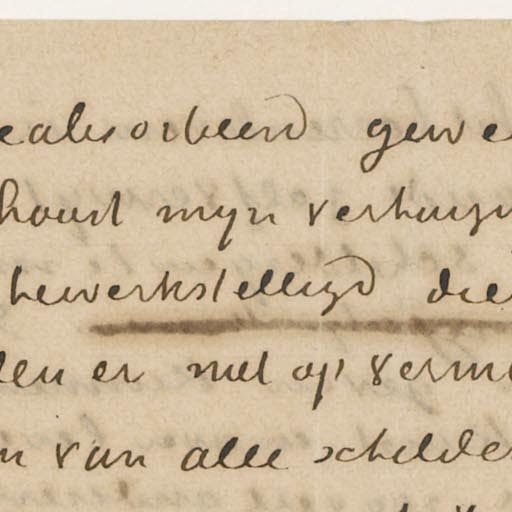 eabsorbeerd gewe
houd myn verhuyz
bewerkstelligd die
len er niet op verm
n van alle schilder